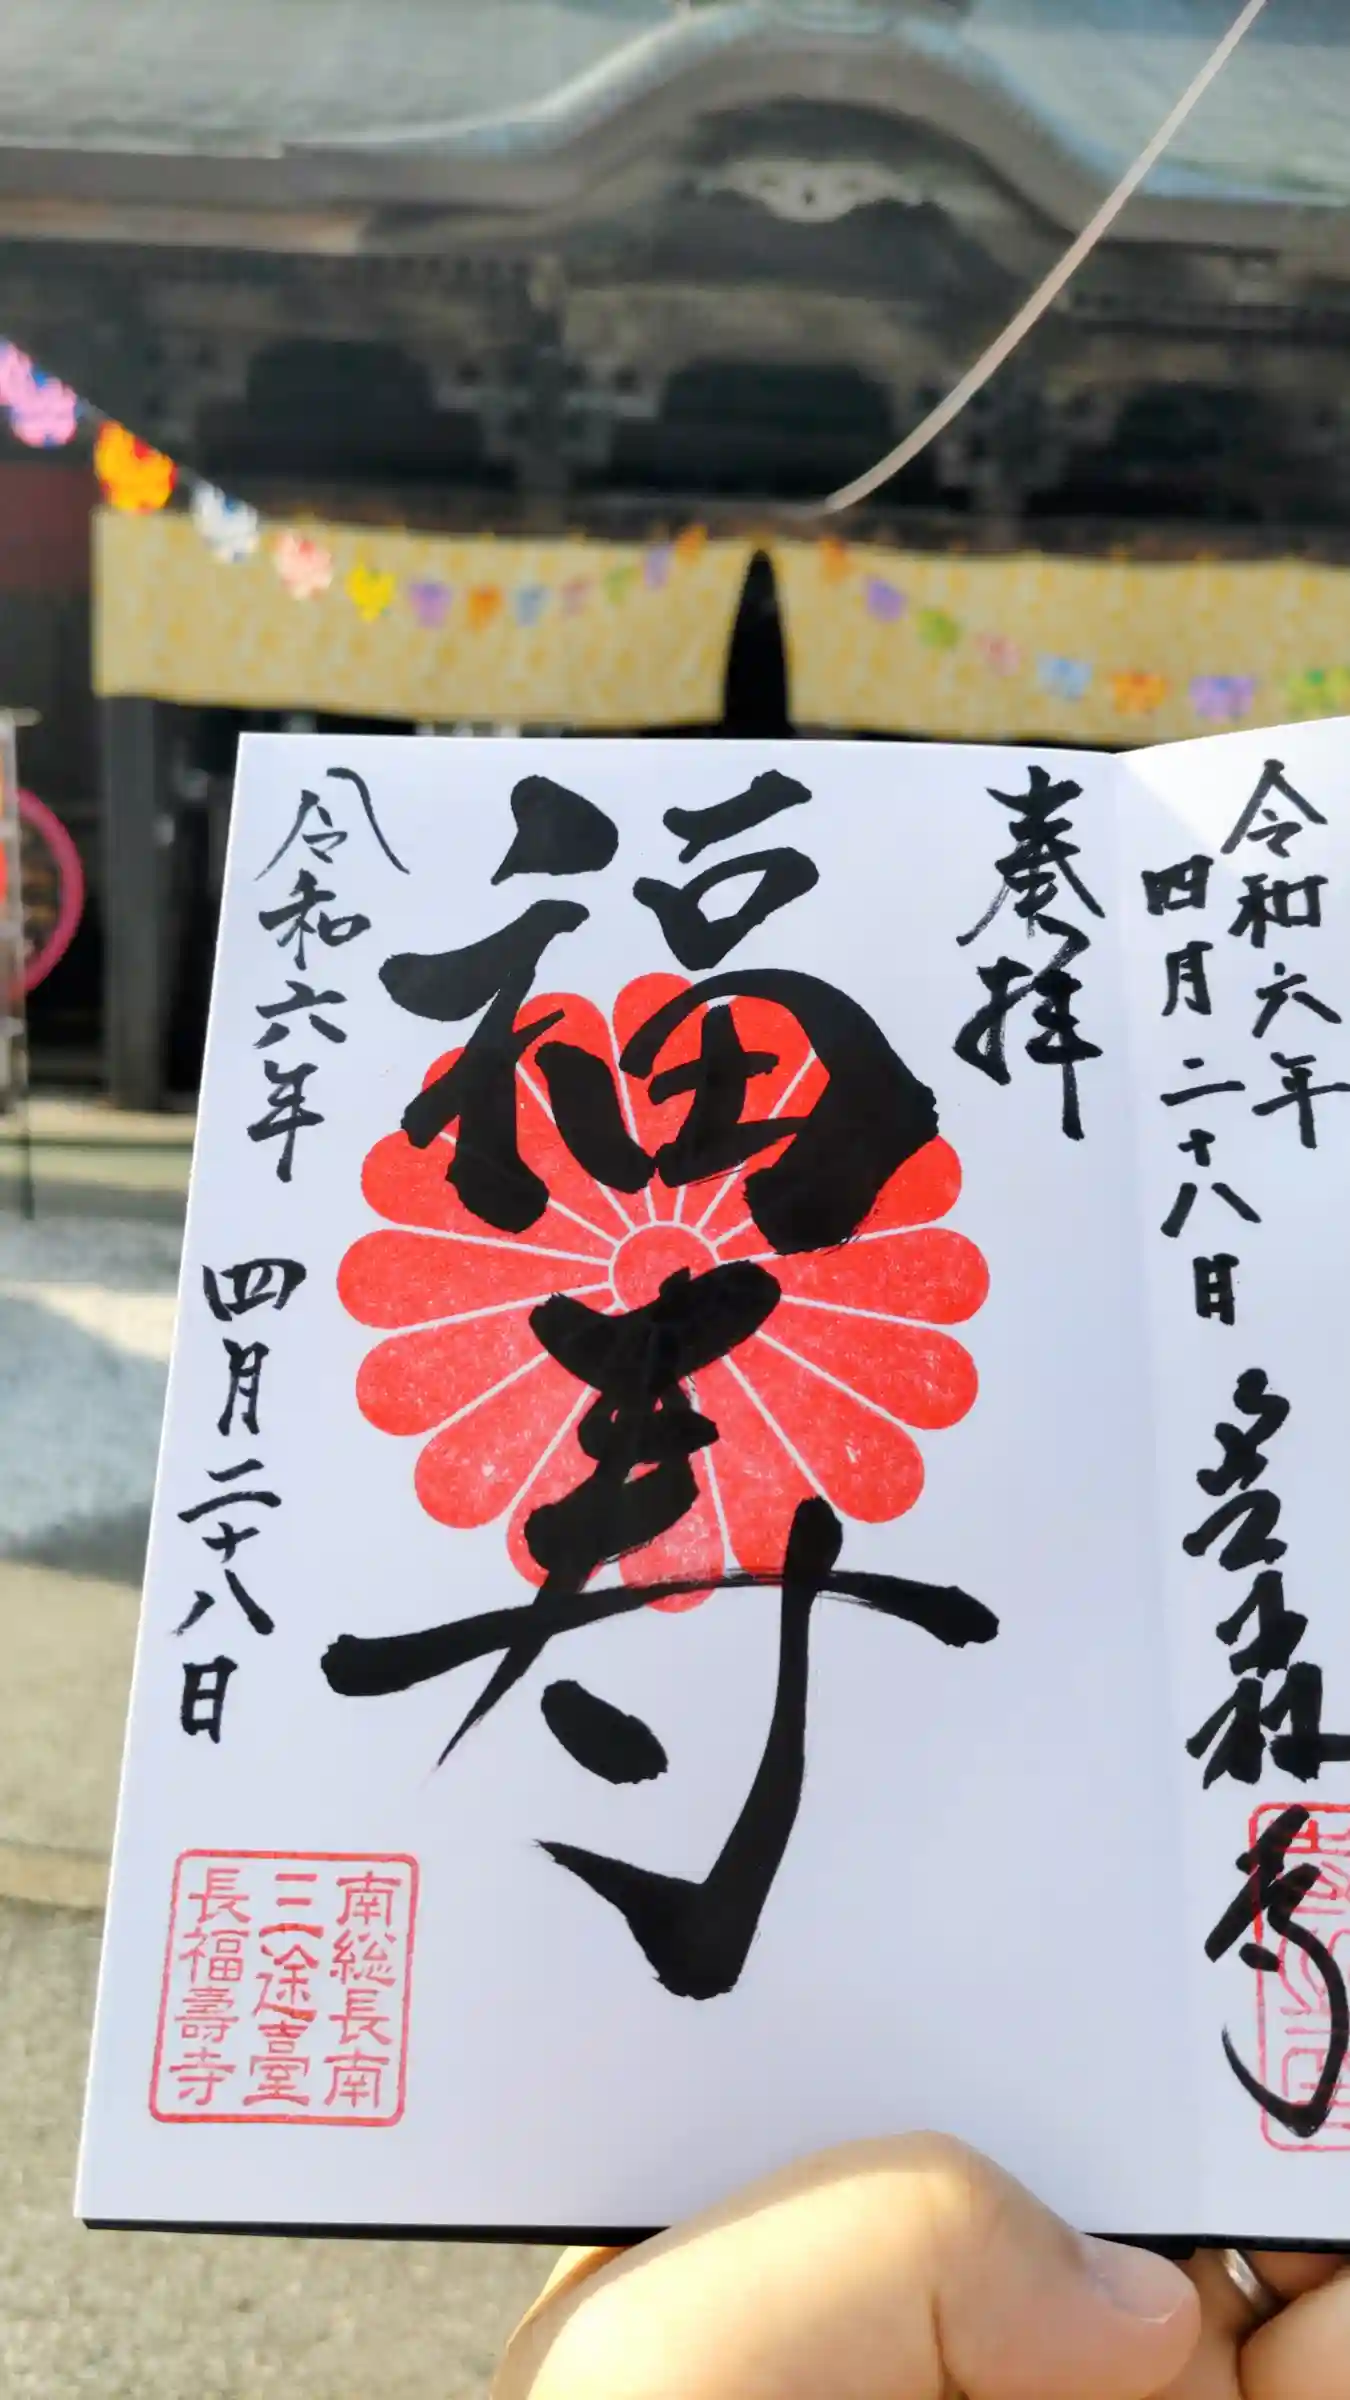 令和六年
四月二十八日
奉拝
福寿
令和六年 四月二十八日
南総長南
三途臺
長福壽寺